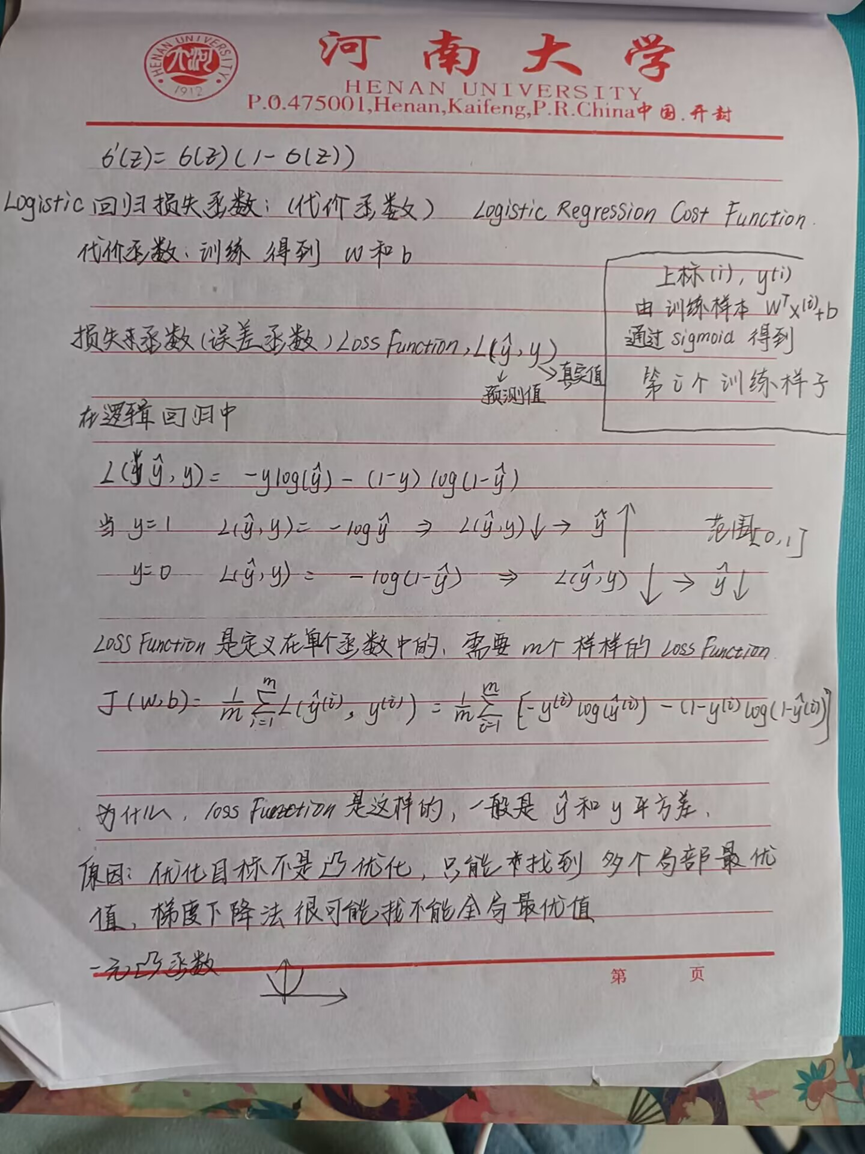 HENAN UNIVERSITY
1912
河南大学
HENAN UNIVERSITY
P.O.475001,Henan,Kaifeng,P.R.China中国.开封
σ'(z)= σ(z)(1-σ(z))
Logistic 回归损失函数:(代价函数) Logistic Regression Cost Function.
代价函数:训练 得到 w和b
上标(i), y(i)
由训练样本 Wᵀx⁽ⁱ⁾+b
通过 sigmoid 得到
第i个训练样子
损失函数(误差函数)Loss Function, L(ŷ, y)
预测值
真实值
在逻辑回归中
L(ŷ, y)= -ylog(ŷ) - (1-y) log(1-ŷ)
当 y=1 L(ŷ,y)= -logŷ ⇒ L(ŷ,y)↓→ ŷ↑ 范围[0,1]
y=0 L(ŷ,y)= -log(1-ŷ) ⇒ L(ŷ,y)↓→ ŷ↓
Loss Function 是定义在单个函数中的,需要m个样样的 Loss Function
J(w,b)= 1/m Σᵢ₌₁ᵐ L(ŷ⁽ⁱ⁾, y⁽ⁱ⁾) = 1/m Σᵢ₌₁ᵐ [-y⁽ⁱ⁾log(ŷ⁽ⁱ⁾) - (1-y⁽ⁱ⁾log(1-ŷ⁽ⁱ⁾)]
为什么, loss Function 是这样的,一般是 ŷ 和 y 平方差.
原因:优化目标不是凸优化,只能找到 多个局部最优
值,梯度下降法很可能找不能全局最优值
一元凸函数
第 页